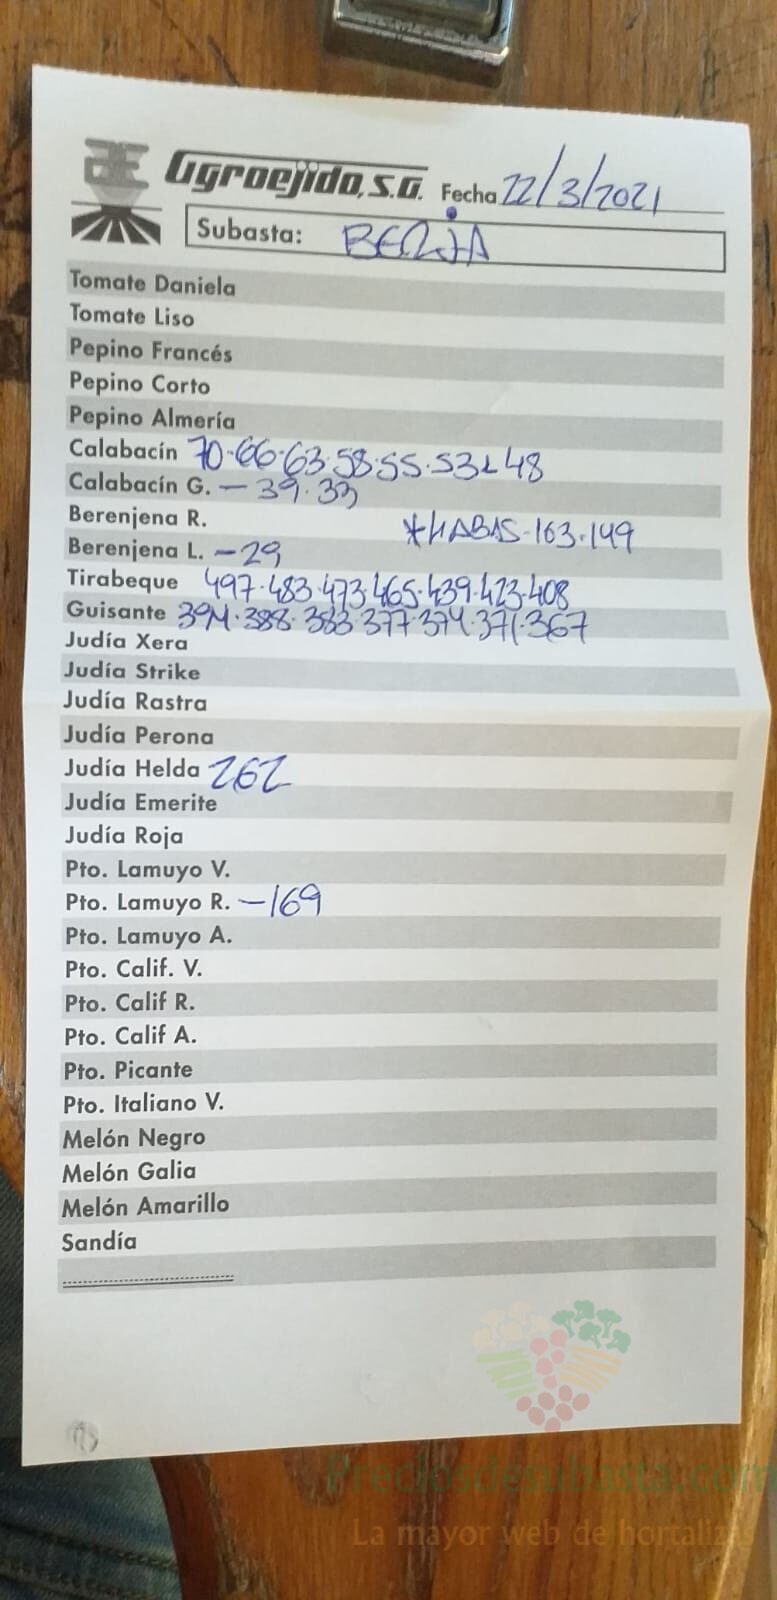 Agroejido, S.A. Fecha 22/3/2021
Subasta: BERJA
Tomate Daniela
Tomate Liso
Pepino Francés
Pepino Corto
Pepino Almería
Calabacín 70·66·63·58·55·53 48
Calabacín G. - 39·33
Berenjena R. *HABAS-163·149
Berenjena L. -29
Tirabeque 497·483·473·465·439·423·408
Guisante 394·388·383·377·374·371·367
Judía Xera
Judía Strike
Judía Rastra
Judía Perona
Judía Helda 262
Judía Emerite
Judía Roja
Pto. Lamuyo V.
Pto. Lamuyo R. -169
Pto. Lamuyo A.
Pto. Calif. V.
Pto. Calif R.
Pto. Calif A.
Pto. Picante
Pto. Italiano V.
Melón Negro
Melón Galia
Melón Amarillo
Sandía
Preciosdesubasta.com
La mayor web de hortalizas